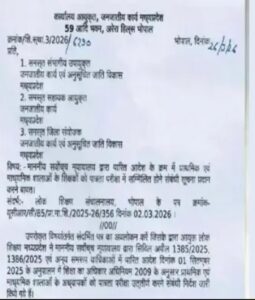 कार्यालय आयुक्त, जनजातीय कार्य मध्यप्रदेश
59 आदि भवन, अरेरा हिल्स भोपाल
क्रमांक/शि.स्था.3/2026/6290 भोपाल, दिनांक
प्रति,
1. समस्त संभागीय उपायुक्त
जनजातीय कार्य एवं अनुसूचित जाति विकास
मध्यप्रदेश
2. समस्त सहायक आयुक्त
जनजातीय कार्य
मध्यप्रदेश
3. समस्त जिला संयोजक
जनजातीय कार्य एवं अनुसूचित जाति विकास
मध्यप्रदेश
विषय:- माननीय सर्वोच्च न्यायालय द्वारा पारित आदेश के क्रम में प्राथमिक एवं
माध्यमिक शालाओं के शिक्षकों को पात्रता परीक्षा में सम्मिलित होने संबंधी सूचना प्रदान
करने बाबत।
संदर्भ:- लोक शिक्षण संचालनालय, भोपाल के पत्र
2025-26/356 दिनांक 02.03.2026।
उपरोक्त विषयांतर्गत संदर्भित पत्र का अवलोकन करें जिसके द्वारा आयुक्त लोक
शिक्षण मध्यप्रदेश ने माननीय सर्वोच्च न्यायालय द्वारा सिविल अपील 1385/2025,
1386/2025 एवं अन्य समरूप याचिकाओं में पारित आदेश दिनांक 01 सितम्बर
2025 के अनुपालन में शिक्षा का अधिकार अधिनियम 2009 के अनुसार प्राथमिक एवं
माध्यमिक शालाओं के अध्यापकों को पात्रता परीक्षा उत्तीर्ण करने संबंधी निर्देश जारी
किये गये हैं।